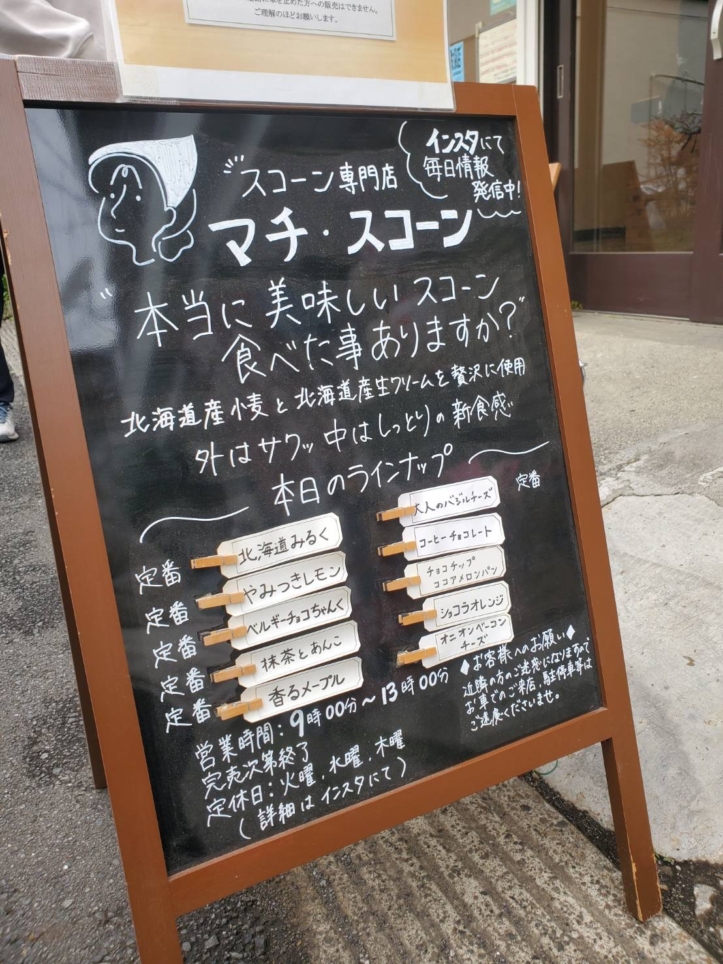 ご理解のほどお願いします。
インスタにて
毎日情報
発信中!
スコーン専門店
マチ・スコーン
"本当に美味しいスコーン
食べた事ありますか?"
北海道産小麦と北海道産生クリームを贅沢に使用
外はサクッ中はしっとりの新食感
本日のラインナップ
定番 北海道みるく
定番 やみつきレモン
定番 ベルギーチョコちゃんく
定番 抹茶とあんこ
定番 香るメープル
大人のバジルチーズ 定番
コーヒーチョコレート
チョコチップ
ココアメロンパン
ショコラオレンジ
オニオンベーコン
チーズ
営業時間:9時00分~13時00分
完売次第終了
定休日:火曜、水曜、木曜
(詳細はインスタにて)
◆お客様へのお願い◆
近隣の方のご迷惑になりますので
お車でのご来店、駐停車等は
ご遠慮くださいませ。